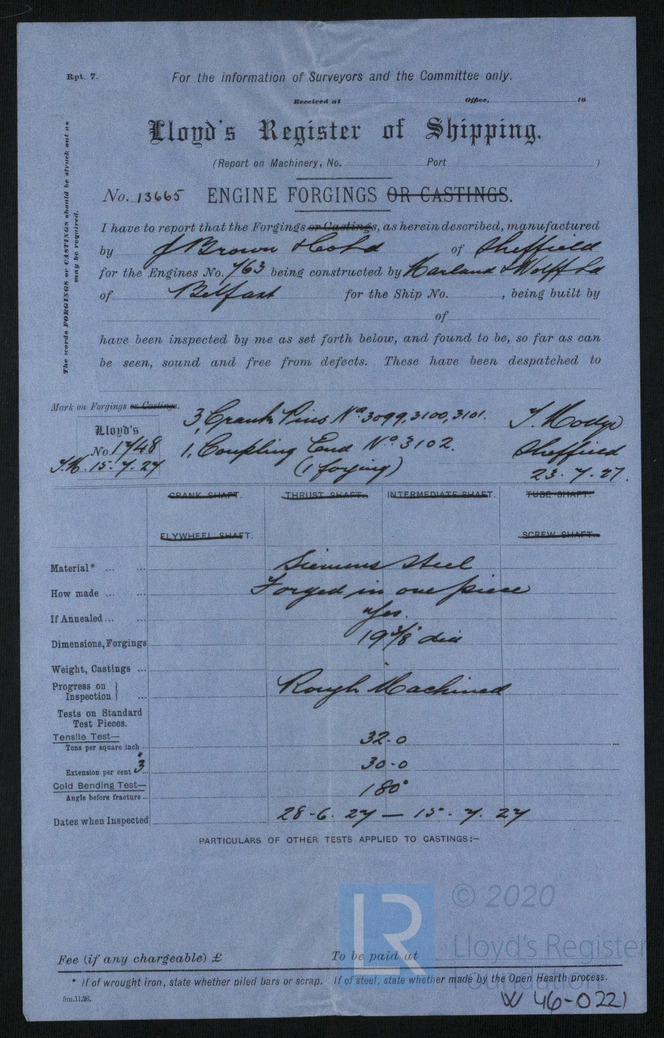 Rpt. 7.
For the information of Surveyors and the Committee only.
Received at Office, 19
Lloyd's Register of Shipping.
(Report on Machinery, No. Port )
No. 13665 ENGINE FORGINGS OR CASTINGS.
The words FORGINGS or CASTINGS should be struck out as may be required.
I have to report that the Forgings or Castings, as herein described, manufactured
by J Brown & Co Ld of Sheffield
for the Engines No. 763 being constructed by Harland & Wolff Ld
of Belfast for the Ship No. , being built by
of
have been inspected by me as set forth below, and found to be, so far as can
be seen, sound and free from defects. These have been despatched to
Mark on Forgings or Castings.
3, Crank Pins Nos 3099, 3100, 3101.
Lloyd's
No 1748
15.7.27
1, Coupling End No. 3102.
(1 forging)
Sheffield
23.7.27.
CRANK SHAFT. THRUST SHAFT. INTERMEDIATE SHAFT. TUBE SHAFT.
FLYWHEEL SHAFT. SCREW SHAFT.
Material* ... ... Siemens Steel
How made ... ... Forged in one piece
If Annealed ... ... Yes.
Dimensions, Forgings 19 3/8 dia
Weight, Castings ...
Progress on Inspection } ... Rough Machined
Tests on Standard Test Pieces.
Tensile Test—
Tons per square inch 32.0
Extension per cent 3" 30.0
Cold Bending Test—
Angle before fracture 180°
Dates when Inspected 28-6.27 — 15.7.27
PARTICULARS OF OTHER TESTS APPLIED TO CASTINGS:—
© 2020
LR
Lloyd's Register
Foundation
Fee (if any chargeable) £ To be paid at
* If of wrought iron, state whether piled bars or scrap. If of steel, state whether made by the Open Hearth process.
5m.11.26.
W46-0221